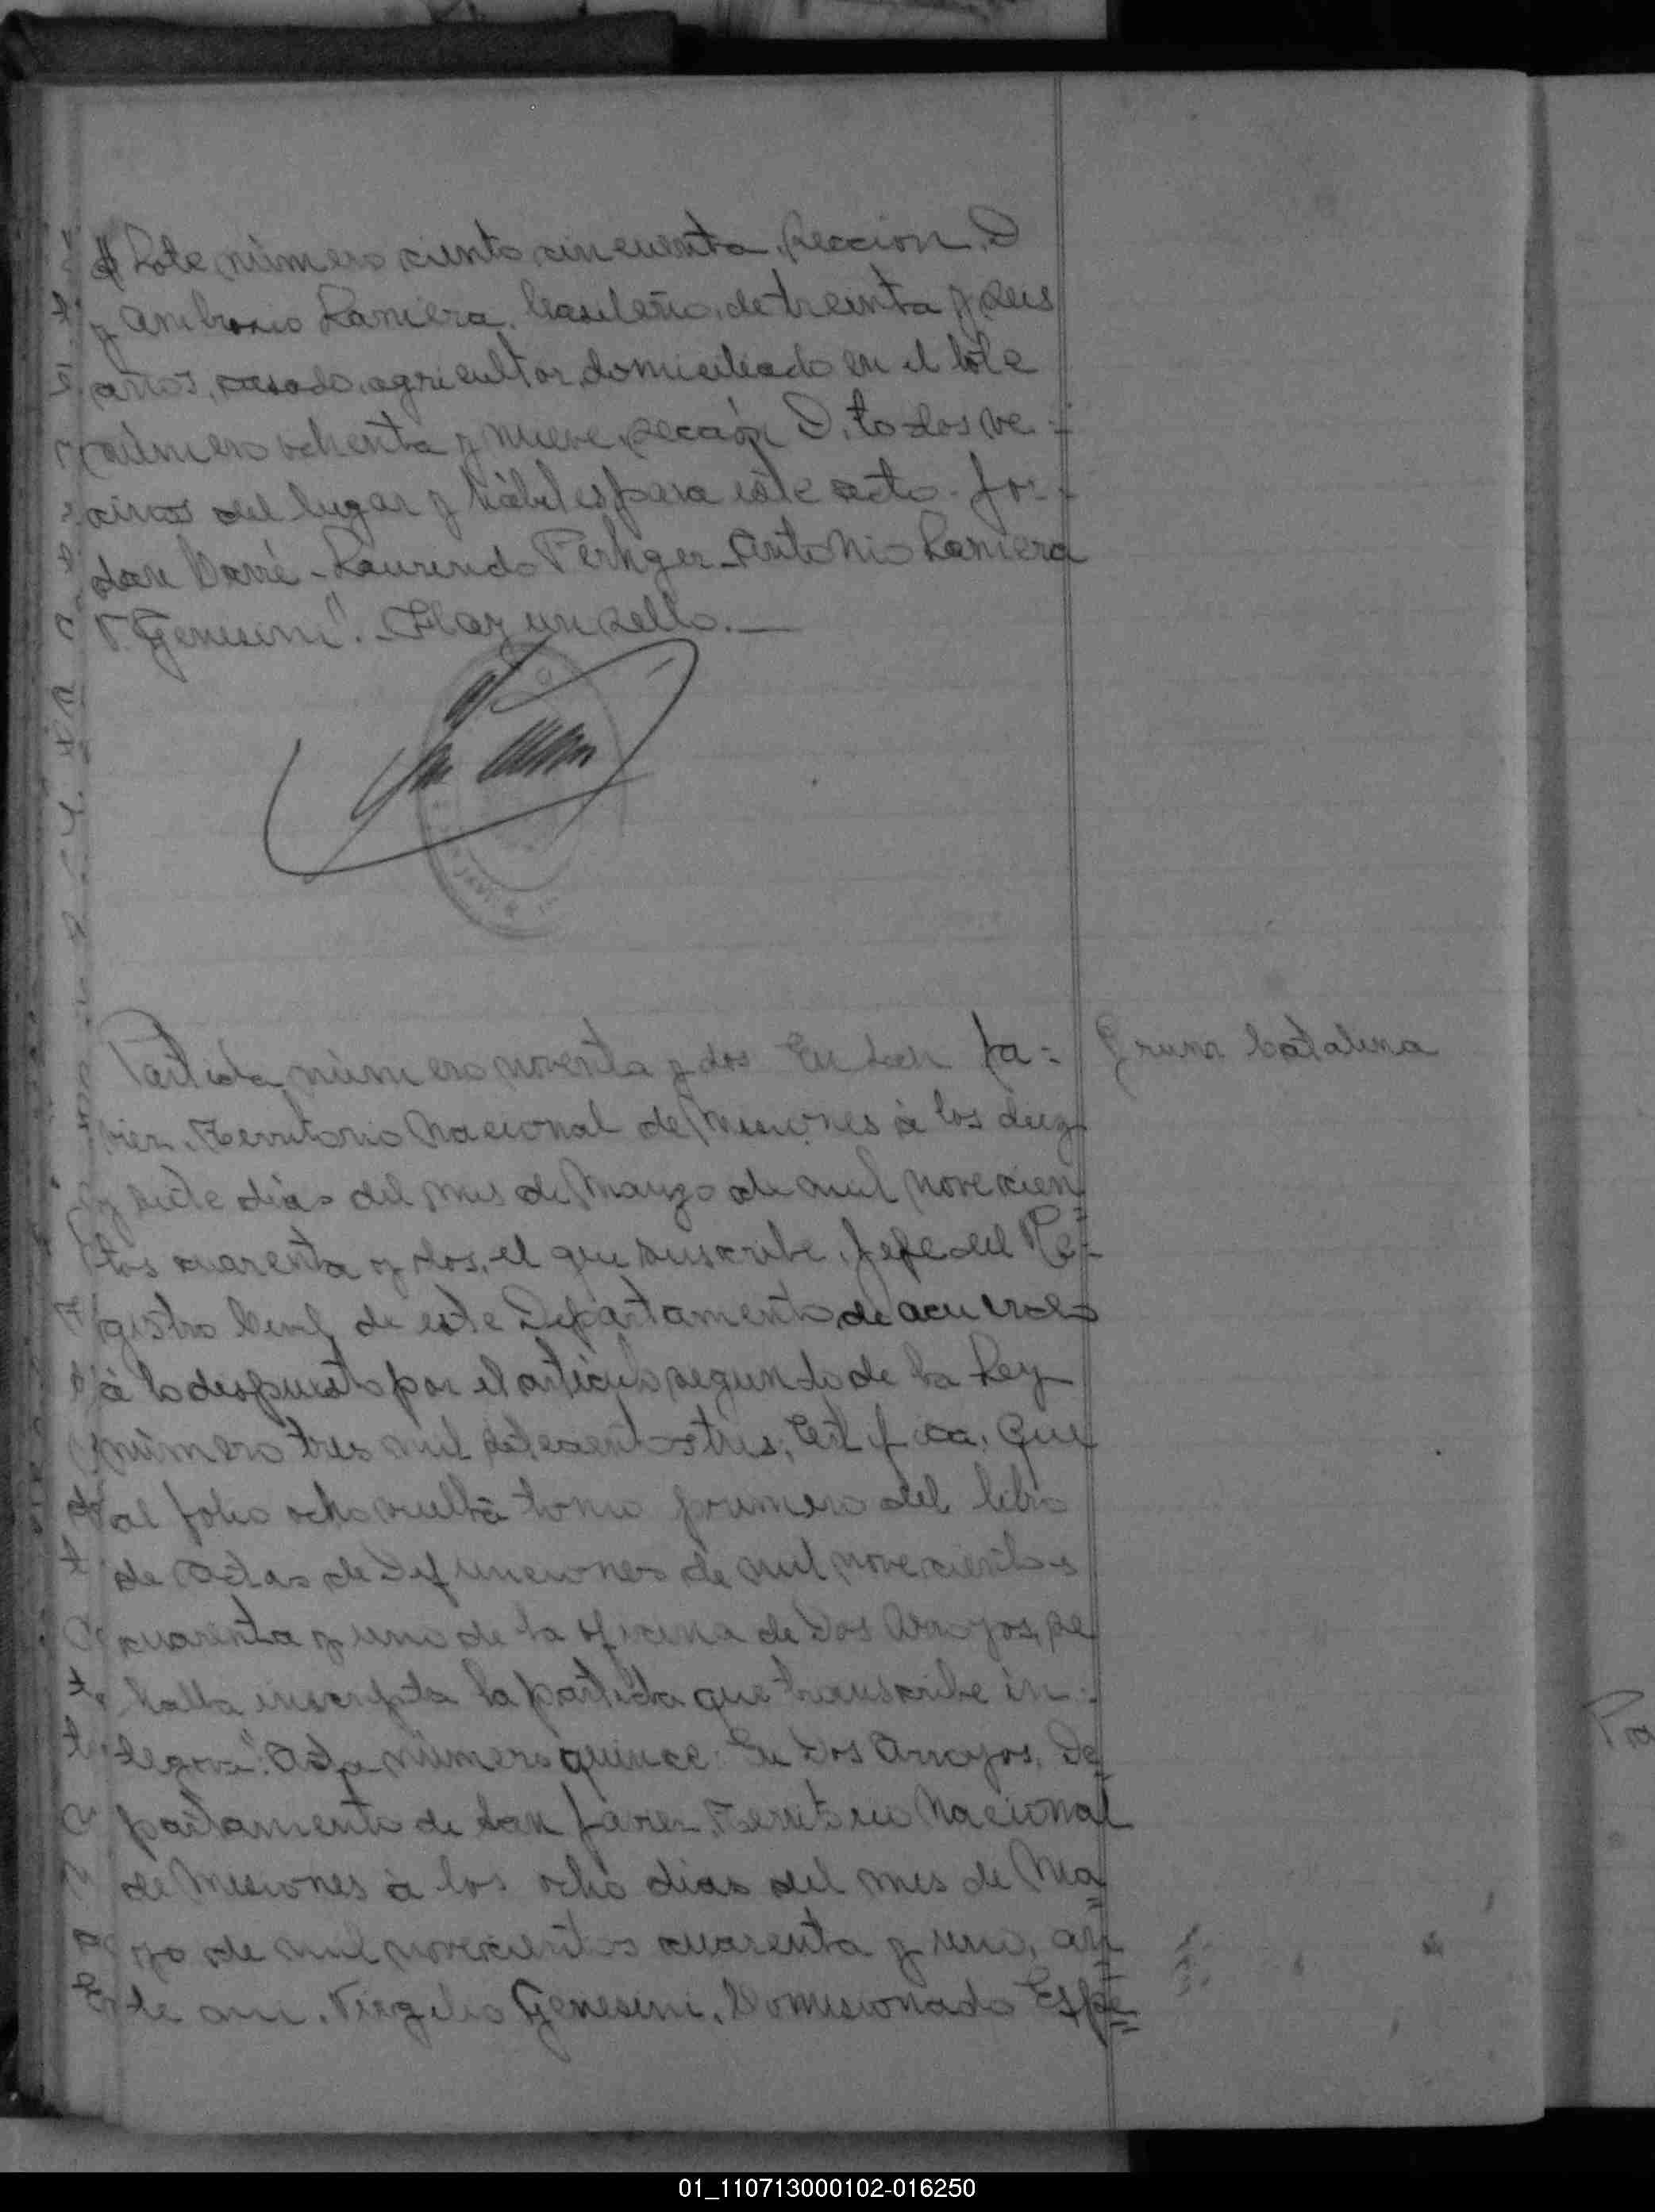 el Lote número ciento cincuenta, seccion D
y Ambrosio Ramera, brasileño, de treinta y seis
años, casado, agricultor, domiciliado en el lote
número ochenta y nueve, sección D, todos ve-
cinos del lugar y hábiles para este acto. Jor-
dan Barré - Laurindo Perhger - Antonio Ramera
V. Genesini". Hay un sello. —
Partida número noventa y dos En San Ja=
vier, Territorio Nacional de Misiones á los diez
y siete días del mes de Marzo de mil novecien=
tos cuarenta y dos, el que suscribe, Jefe del Re=
gistro Civil de este Departamento de acuerdo
á lo despuesto por el artículo segundo de la Ley
número tres mil setecientos tres; Certifica, que
al folio ocho vuelta tomo primero del libro
de Actas de Defunciones de mil novecientos
cuarenta y uno de la oficina de Dos Arroyos, se
halla inscripta la partida que transcribe in-
tegra: "Acta número quince: En Dos Arroyos, De=
partamento de San Javier, Territorio Nacional
de Misiones á los ocho días del mes de Ma=
yo de mil novecientos cuarenta y uno, an=
te mi, Virgilio Genesini, Comisionado Espe=
Grunr Catalina
01_110713000102-016250